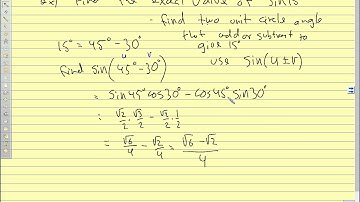 Ex) Find the exact value of sin15°
- find two unit circle angle
that add or subtract to
give 15°
15° = 45° - 30°
u v
find sin(45° - 30°) use sin(u ± v)
= sin45°cos30° - cos45°sin30°
= √2/2 · √3/2 - √2/2 · 1/2
= √6/4 - √2/4 = (√6 - √2)/4